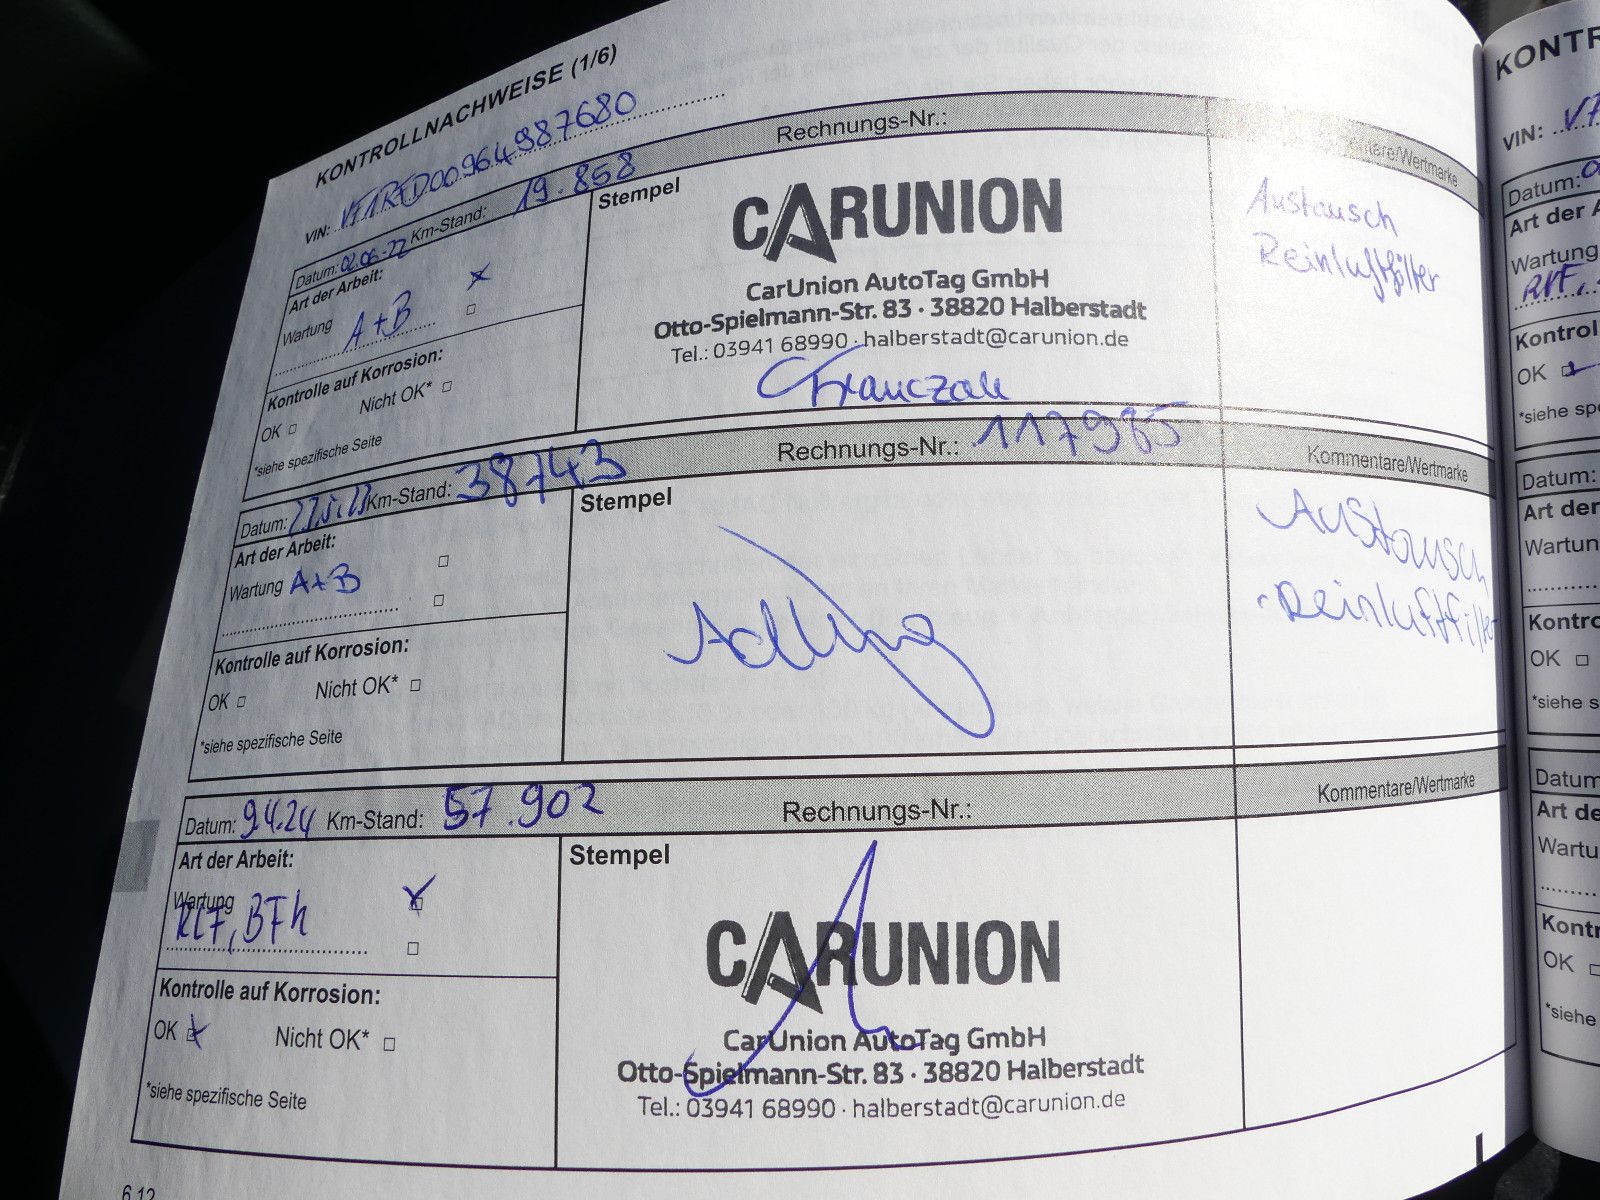 KONTROLLNACHWEISE (1/6)
VIN: VF1RFD00964987680
Datum: 02.06.22 Km-Stand: 19.858 Rechnungs-Nr.:
Kommentare/Wertmarke
Art der Arbeit:
Wartung A+B
Kontrolle auf Korrosion:
OK Nicht OK*
*siehe spezifische Seite
Stempel
CARUNION
CarUnion AutoTag GmbH
Otto-Spielmann-Str. 83 · 38820 Halberstadt
Tel.: 03941 68990 · halberstadt@carunion.de
Franczak
Austausch
Reinluftfilter
Datum: Km-Stand: 38743 Rechnungs-Nr.: 117985 Kommentare/Wertmarke
Art der Arbeit:
Wartung A+B
Kontrolle auf Korrosion:
OK Nicht OK*
*siehe spezifische Seite
Stempel
Austausch
Reinluftfilter
Datum: 9.4.24 Km-Stand: 57.902 Rechnungs-Nr.: Kommentare/Wertmarke
Art der Arbeit:
Wartung
RLF, BFh
Kontrolle auf Korrosion:
OK Nicht OK*
*siehe spezifische Seite
Stempel
CARUNION
CarUnion AutoTag GmbH
Otto-Spielmann-Str. 83 · 38820 Halberstadt
Tel.: 03941 68990 · halberstadt@carunion.de
6.12
KONTR
VIN: VF
Datum:
Art der A
Wartung
RLF,
Kontrol
OK
*siehe spe
Datum:
Art der
Wartun
Kontro
OK
*siehe s
Datum
Art de
Wartu
Kontr
OK
*siehe